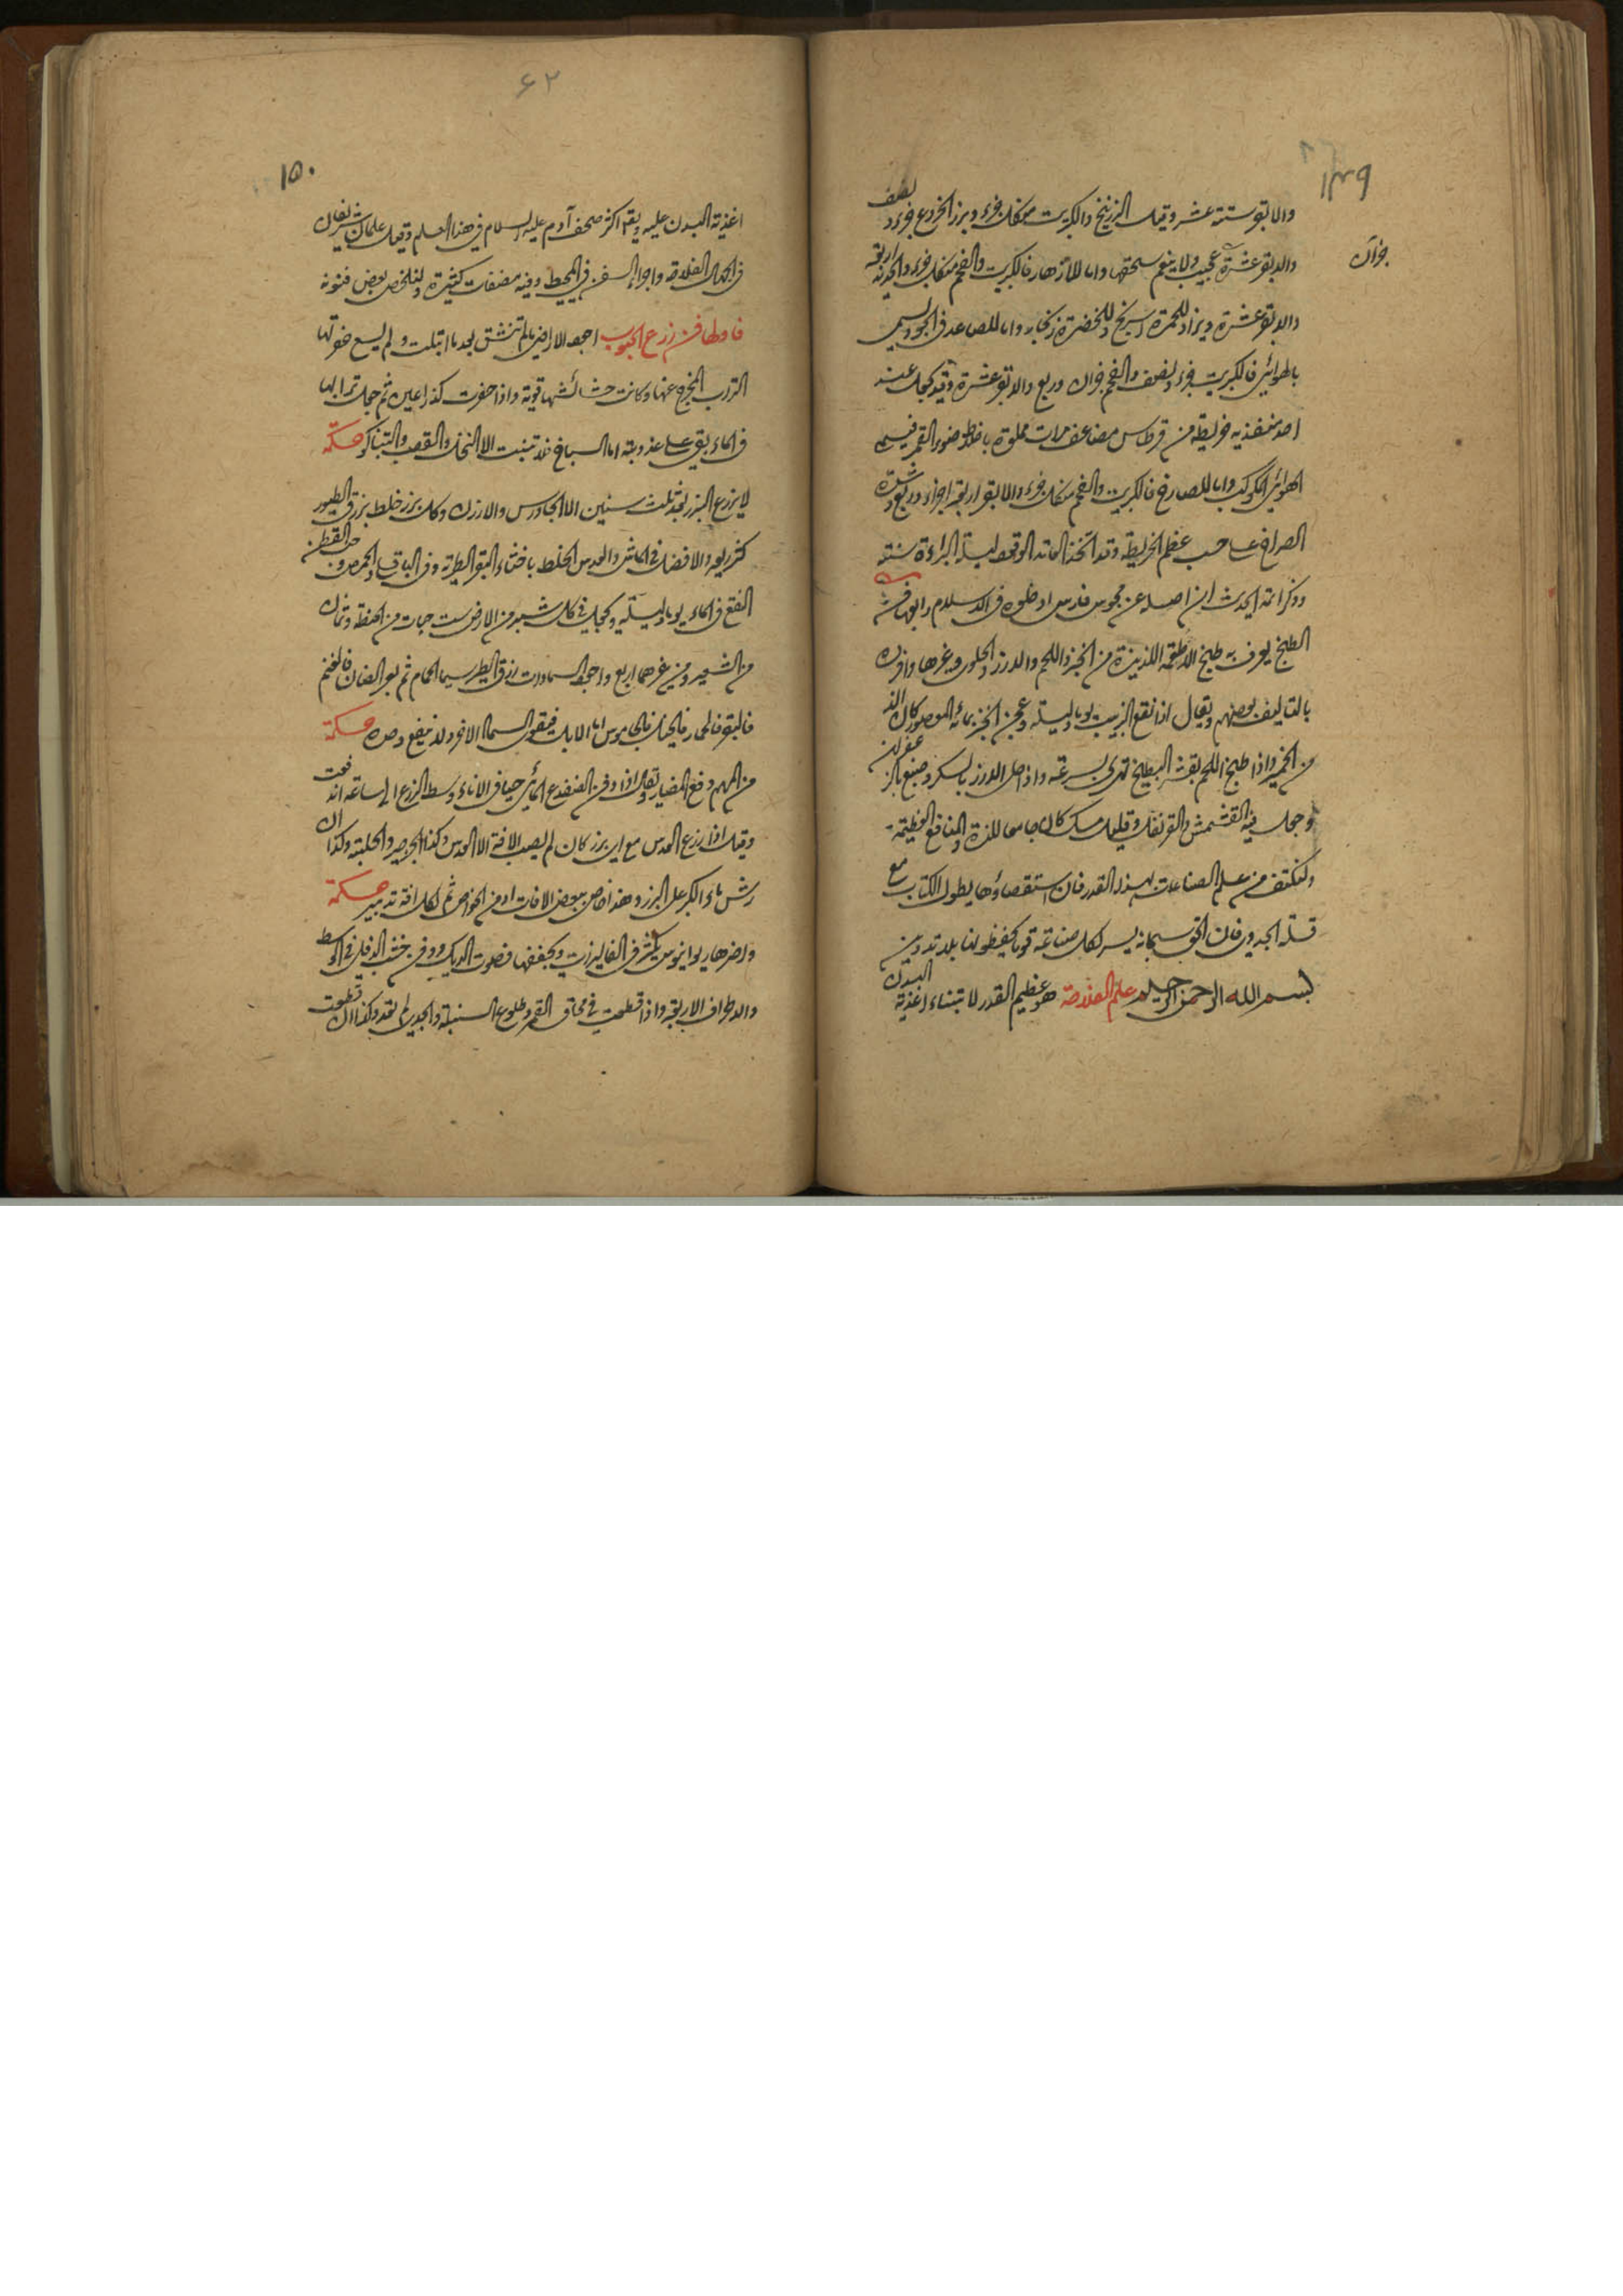 ١٤٩
والابقر ستة عشر وقيل الزرنيخ والكبريت من كل جزء وبزر الخروع جزء ونصف
والابقر عشرة عجيب ولا ينعم سحقها واما للازهار فالكبريت والفحم من كل جزء والحديد اربعة
جزآن
والابقر عشرة ويزاد للحمرة اسرنج وللخضرة زنجار واما للصاعد في الجو ويسمى
بالهوائي فالكبريت جزء ونصف والفحم جزآن وربع والابقر عشرة وقد يجعل عند
احد منفذيه خريطة من قرطاس مضاعف مرات مملوة باخلاط ضوء القمر فيسمى
الهوائي الكوكب واما للصارخ فالكبريت والفحم من كل جزء والابقر اربعة اجزاء وربع وشدة
الصراخ على حسب عظم الخريطة وقد اتخذ العامة الوقود ليلة البراءة سنة
وذكر ائمة الحديث ان اصله عن مجوس فارس ادخلوه في الاسلام رابعها فن
الطبخ يعرف به طبخ الاطعمة اللذيذة من الخبز واللحم والارز والحلوى وغيرها وافرده
بالتاليف بعضهم ويقال اذا نقع الزبيب يوما وليلة وعجن الخبز بمائه المعصور كان الذ
من الخمير واذا طبخ اللحم بقشر البطيخ تهرى بسرعة واذا حلى الارز بالسكر وصبغ بالزعفران
وجعل فيه القشمش والقرنفل وقليل مسك كان جامعا للذة والمنافع العظيمة
ولنكتف من علم الصناعات بهذا القدر فان استقصاؤها يطول الكتاب مع
قلة الجدوى فان الحق سبحانه يسر لكل صناعة قوما يحفظونها بلا تدوين
بسم الله الرحمن الرحيم علم الفلاحة هو عظيم القدر لابتناء اغذية البدن
٦٢
١٥٠
اغذية البدن عليه ويقع اكثر صحف آدم عليه السلام في هذا العلم وقيل علمان شريفان
في اهمال الفلاحة واجراء السفن في المحيط وفيه مصنفات كثيرة ولنلخص بعض فنونه
فاولها فن زرع الحبوب اجود الاراضي ما لم تنشق بعد ما ابتلت ولم يسع حفرتها
التراب المخرج عنها وكانت حشائشها قوية واذا حفرت كذراعين ثم جعل ترابها
في الماء بقي على عذوبته اما السباخ فلا تنبت الا النخل والقصب والتنباكو حكمة
لا يزرع البزر بعد ثلث سنين الا الجاورس والارز وكل بزر خلط بزرق الطيور
كثر ريعه والافضل في الماش والعدس الخلط باخثاء البقر الطرية وفي الباقلا والحمص وحب القطن
النقع في الماء يوما وليلة ويجعل في كل شبر من الارض ست حبات من الحنطة وثمان
من الشعير ومن غيرهما اربع واجود السمادات زرق الطير سيما الحمام ثم بعر الضان فالغنم
فالبقر فالحمار فالخيل فالجاموس اما الابل فيقوى السماد الاخر ولا ينفع وحده حكمة
من المهم دفع المضار يقال اذا دفن الضفدع المائي حيا في الاناء وسط الزرع الى ساعة اندفعت
وقيل اذا زرع العدس مع اي بزر كان لم يصب الافة الا العدس وكذا الجرجير والحلبة وكذا ان
رش ماء الكبر على البزر وهذا خاص ببعض الافات او من الخواص ثم لكل افة تدبير حكمة
واضرها ريوانوس يكثر في الفاليزات ويجففها فصوت الديك ودفن خشب الدفلى في الوسط
والاطراف الاربعة واذا قطعت في محاق القمر وطلوع السنبلة والجدي لم تعد وكذا ان قطعت